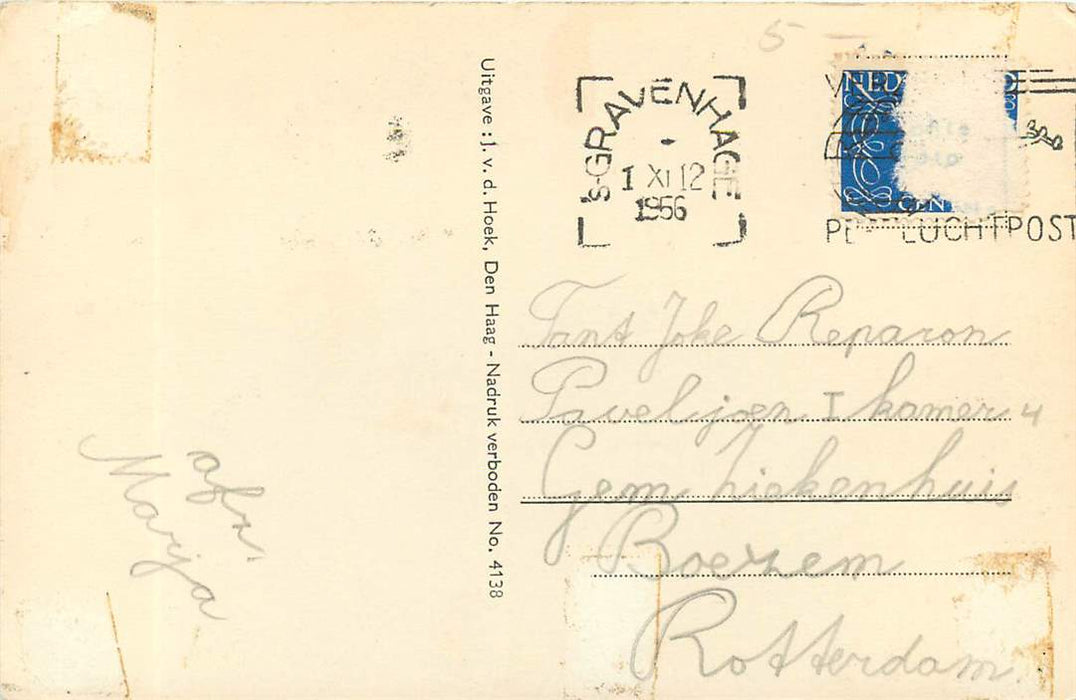 5
'S-GRAVENHAGE
1 XI 12
1956
NED
CEN
LUCHTPOST
Uitgave : J. v. d. Hoek, Den Haag - Nadruk verboden No. 4138
Tant Joke Reparon
Paveljoen I kamer 4
Gem. Ziekenhuis
Boezem
Rotterdam
afz.
Marja